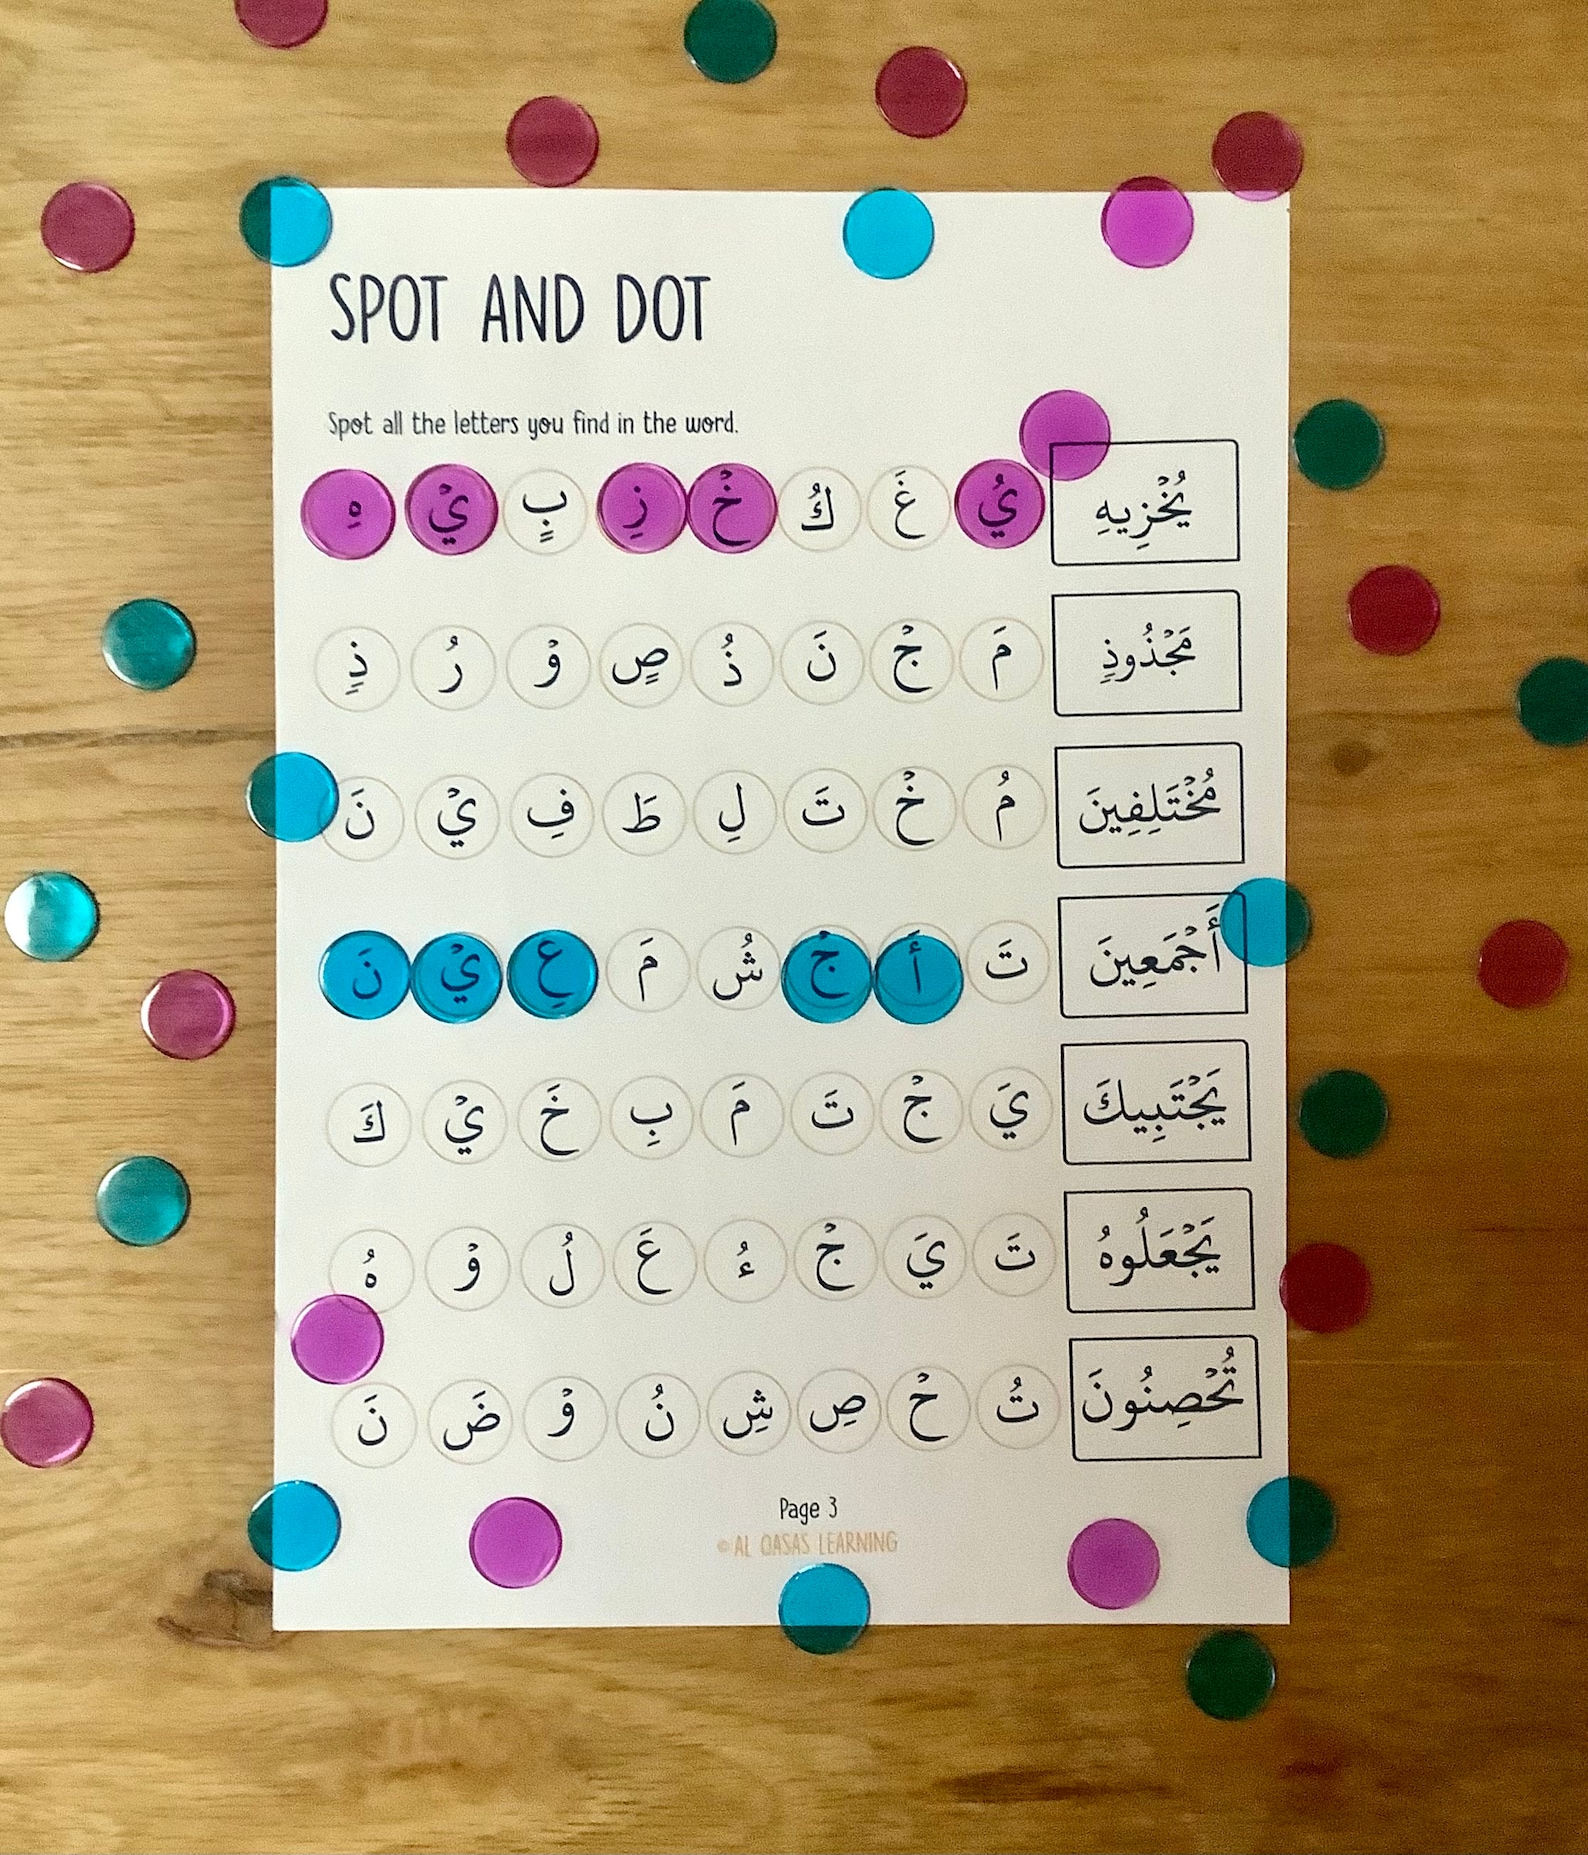 SPOT AND DOT
Spot all the letters you find in the word.
يُخْزِيهِ يُ غَ كُ خْ زِ بٍ يْ هِ
مَجْذُوذٍ مَ جْ نَ ذُ صٍ وْ رُ ذٍ
مُخْتَلِفِينَ مُ خْ تَ لِ طَ فِ يْ نَ
أَجْمَعِينَ تَ أَ جْ شُ مَ عِ يْ نَ
يَجْتَبِيكَ يَ جْ تَ مَ بِ خَ يْ كَ
يَجْعَلُوهُ تَ يَ جْ ءُ عَ لُ وْ هُ
تُحْصِنُونَ تُ حْ صِ شِ نُ وْ ضَ نَ
Page 3
© AL QASAS LEARNING